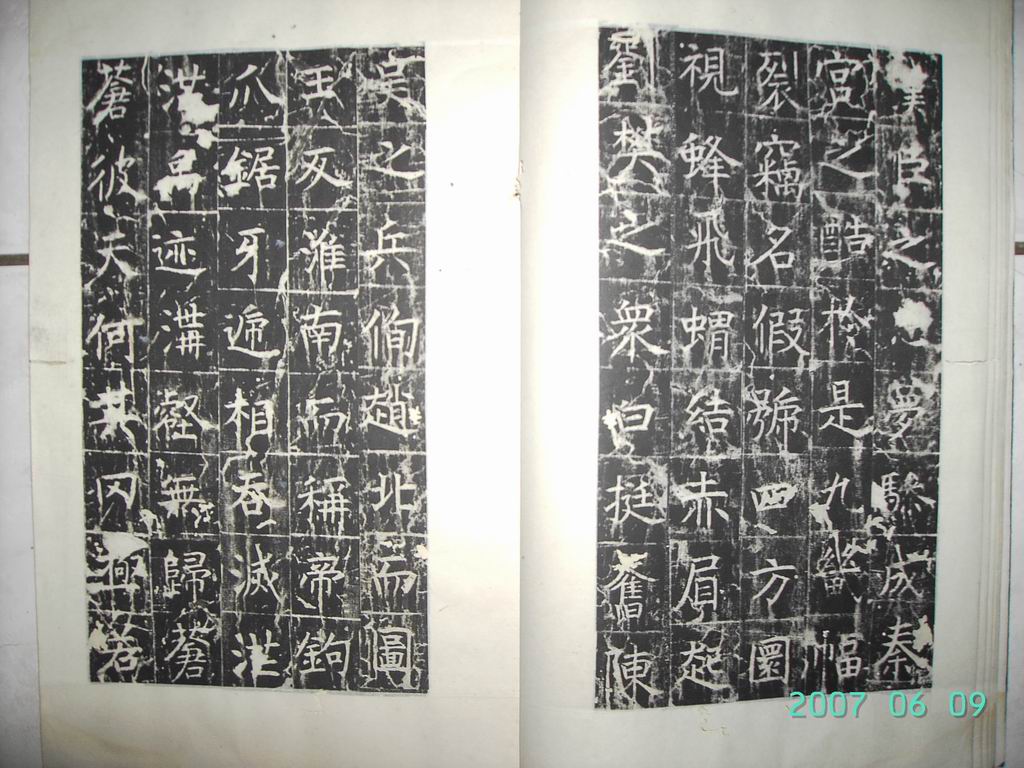 漢臣之　夢縣成秦
宫之酷於是九幽幅
裂竊名假號四方圜
視蜂飛蝟結赤眉起
劉樊之衆白挺奮陳
吴之兵徇趙北而圖
王灰淮南而稱帝鉤
爪鋸牙遞相吞滅洪
洪禹迹溝壑無歸蒼
蒼彼天何其罔極若
2007 06 09